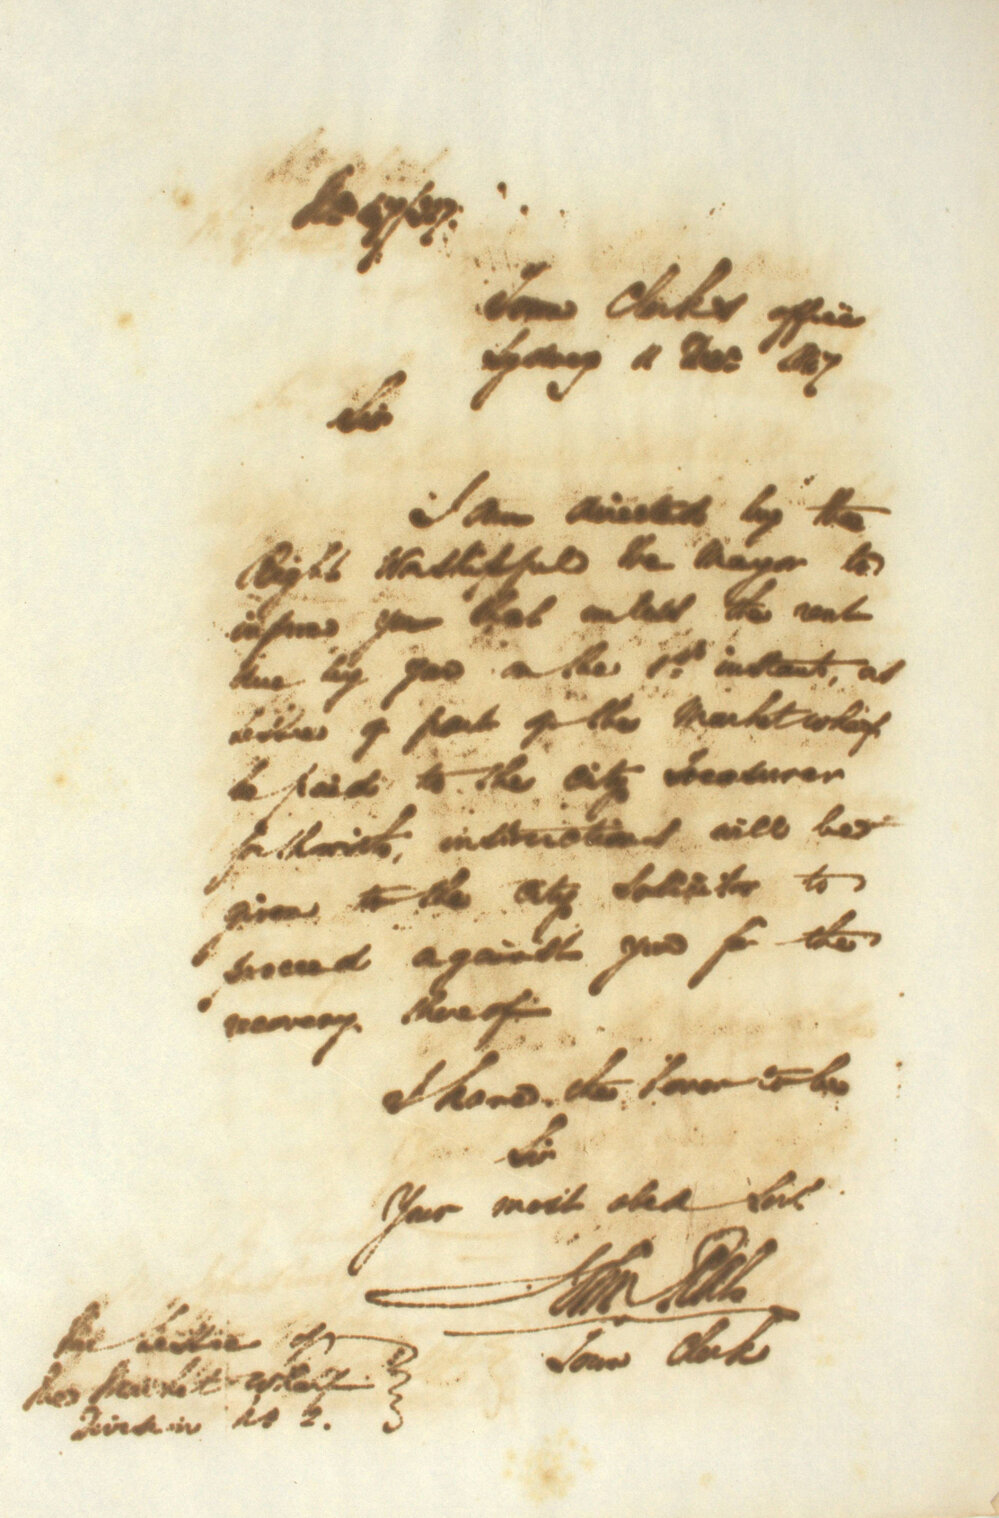 Town Clerk's office
Sydney 11 Decr
Sir
I am directed by the
Right Worshipful the Mayor to
inform you that unless the rent
due by you on the 1st instant, as
Lessee of part of the Market wharf
be paid to the City Treasurer
forthwith, instructions will be
given to the City Solicitor to
proceed against you for the
recovery thereof.
I have the honor to be
Sir
Your most obed Servt
Town Clerk
The Lessee of
the Market wharf
Division No 2.